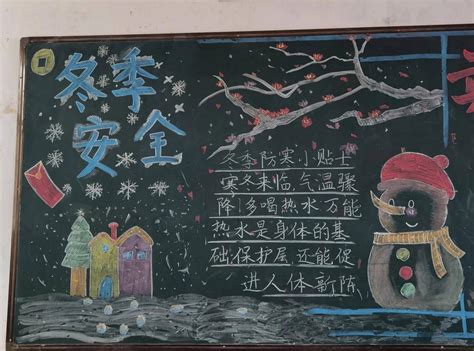 冬季
安全
冬季防寒小贴士
寒冬来临,气温骤
降!多喝热水万能
热水是身体的基
础保护层 还能促
进人体新陈